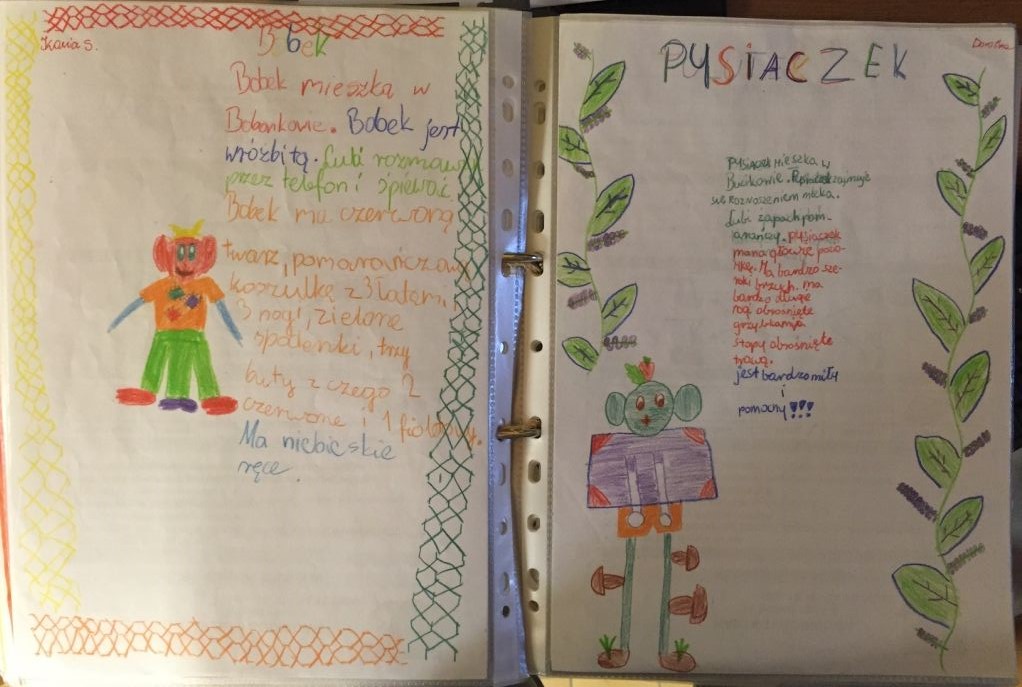 Kania S.
Bobek
Bobek mieszka w
Bobankowie. Bobek jest
wróżbitą. Lubi rozmaw
przez telefon i śpiewać
Bobek ma czerwoną
twarz, pomarańczową
koszulkę z 3 łatami,
3 nogi, zielone
spodenki, trzy
buty z czego 2
czerwone i 1 fioletowy.
Ma niebieskie
ręce.
Dorotka
PYSIACZEK
Pysiaczek mieszka w
Buziakowie. zajmuje
się rozwożeniem mleka.
Lubi zapach pom-
arańczy. Pysiaczek
ma na głowie
Ma bardzo sze-
roki brzuch. ma
bardzo długie
nogi obrośnięte
grzybkami a
stopy obrośnięte
trawą.
jest bardzo miły
i
pomocny!!!